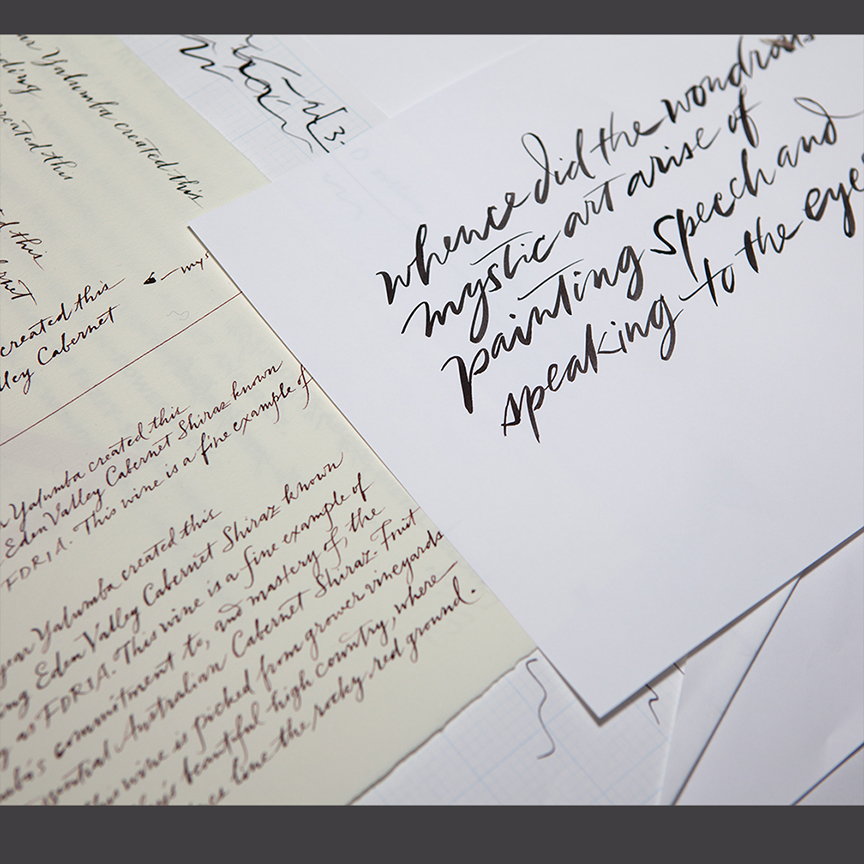 Yalumba created this
created this
this
created this
lley Cabernet
Yalumba created this
Eden Valley Cabernet Shiraz known
FDR1A. This wine is a fine example of
year Yalumba created this
Eden Valley Cabernet Shiraz known
as FDR1A. This wine is a fine example of
commitment to, and mastery of, the
Australian Cabernet Shiraz. Fruit
this wine is picked from grower vineyards
beautiful high country, where
line the rocky red ground.
3.
whence did the wondrous
mystic art arise of
painting speech and
speaking to the eyes